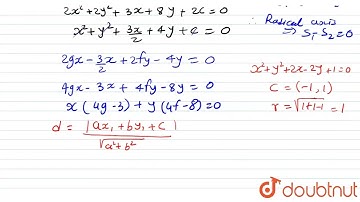 2x²+2y²+3x+8y+2c=0
x²+y²+3x/2+4y+c=0
2gx-3/2x+2fy-4y=0
4gx-3x+4fy-8y=0
x(4g-3)+y(4f-8)=0
d=|ax₁+by₁+c|/√a²+b²
∴ Radical axis
⇒ S₁-S₂=0
x²+y²+2x-2y+1=0
c=(-1,1)
r=√1+1-1=1
doubtnut